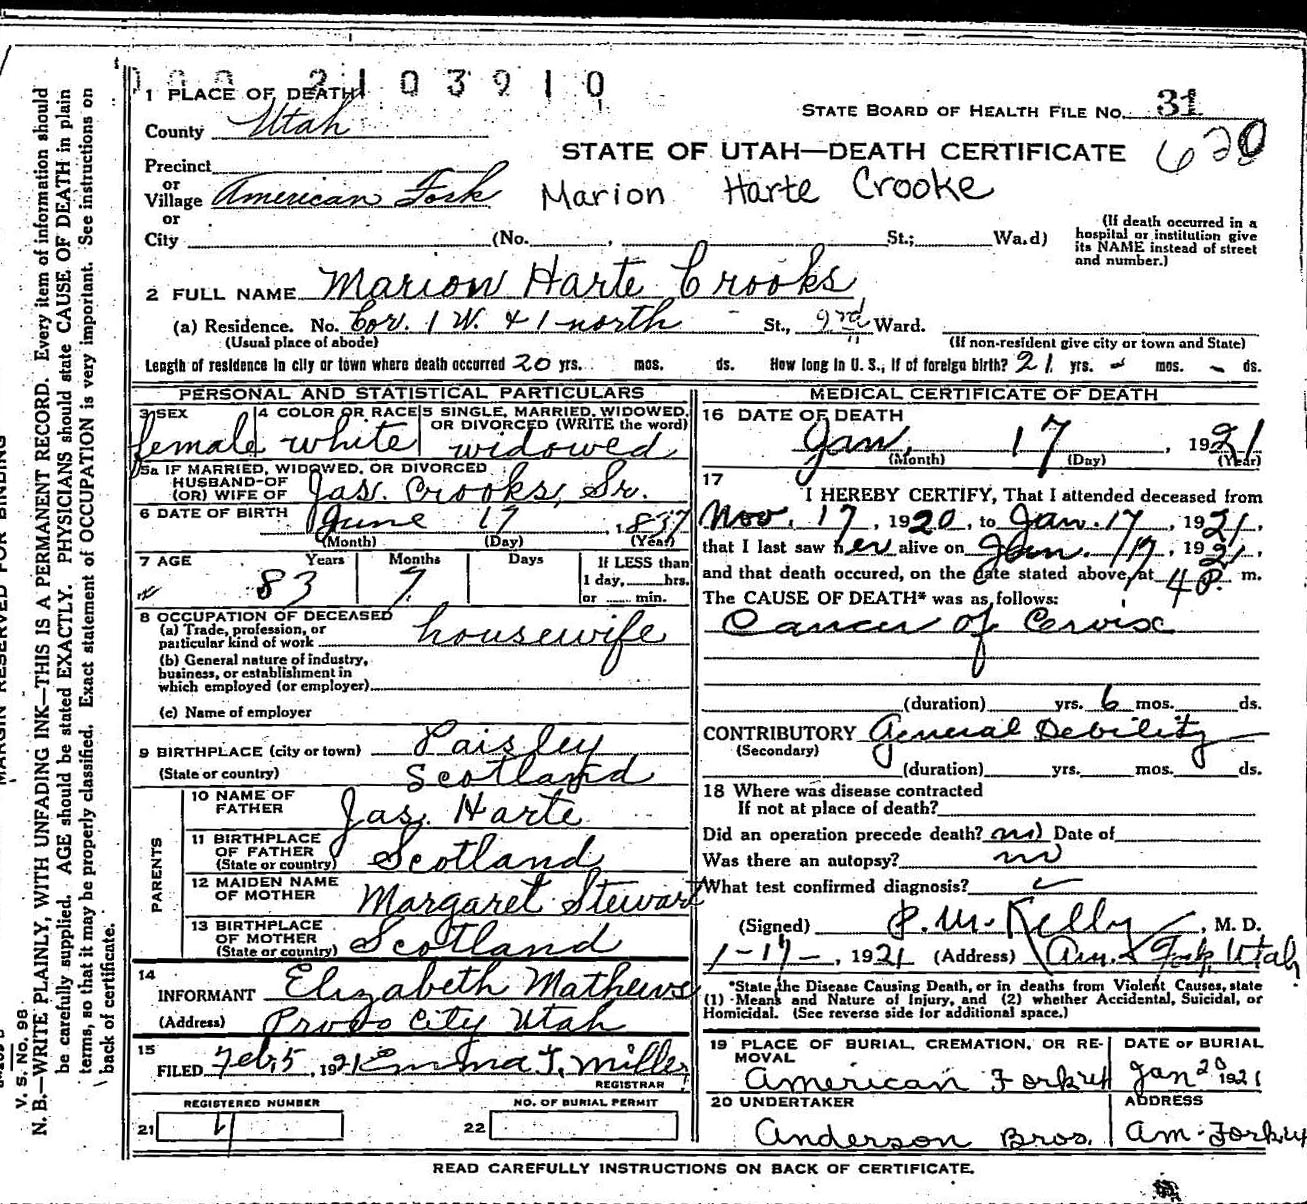 2103910
1 PLACE OF DEATH
STATE BOARD OF HEALTH FILE No. 31
County Utah
620
STATE OF UTAH—DEATH CERTIFICATE
Precinct
or
Village American Fork
Marion Harte Crooke
or
City (No. , St.; Ward)
(If death occurred in a
hospital or institution give
its NAME instead of street
and number.)
2 FULL NAME Marion Harte Crooks
(a) Residence. No. Cor. 1 W. & 1 north St., Ward.
(Usual place of abode)
(If non-resident give city or town and State)
Length of residence in city or town where death occurred 20 yrs. mos. ds. How long in U. S., if of foreign birth? 21 yrs. - mos. - ds.
PERSONAL AND STATISTICAL PARTICULARS
3 SEX
female
4 COLOR OR RACE
white
5 SINGLE, MARRIED, WIDOWED,
OR DIVORCED (WRITE the word)
widowed
5a IF MARRIED, WIDOWED, OR DIVORCED
HUSBAND-OF
(OR) WIFE OF Jas. Crooks, Sr.
6 DATE OF BIRTH June 17, 1837
(Month) (Day) (Year)
7 AGE Years Months Days If LESS than
1 day, hrs.
or min.
83 7
8 OCCUPATION OF DECEASED
(a) Trade, profession, or
particular kind of work housewife
(b) General nature of industry,
business, or establishment in
which employed (or employer)
(c) Name of employer
9 BIRTHPLACE (city or town) Paisley
(State or country) Scotland
PARENTS
10 NAME OF
FATHER Jas. Harte
11 BIRTHPLACE
OF FATHER
(State or country) Scotland
12 MAIDEN NAME
OF MOTHER Margaret Stewart
13 BIRTHPLACE
OF MOTHER
(State or country) Scotland
14
INFORMANT Elizabeth Mathews
(Address) Provo City Utah
15
FILED Feb 5, 1921 Emma T. Miller
REGISTRAR
REGISTERED NUMBER
21 4
NO. OF BURIAL PERMIT
22
MEDICAL CERTIFICATE OF DEATH
16 DATE OF DEATH
Jan. 17, 1921
(Month) (Day) (Year)
17
I HEREBY CERTIFY, That I attended deceased from
Nov. 17, 1920, to Jan. 17, 1921,
that I last saw her alive on Jan. 17, 1921,
and that death occured, on the date stated above, at 4 P. m.
The CAUSE OF DEATH* was as follows:
Cancer of Cervix
(duration) yrs. 6 mos. ds.
CONTRIBUTORY General Debility
(Secondary)
(duration) yrs. mos. ds.
18 Where was disease contracted
If not at place of death?
Did an operation precede death? no Date of
Was there an autopsy? no
What test confirmed diagnosis?
(Signed) P. M. Kelly, M. D.
1-17-, 1921 (Address) Am. Fork, Utah
*State the Disease Causing Death, or in deaths from Violent Causes, state
(1) Means and Nature of Injury, and (2) whether Accidental, Suicidal, or
Homicidal. (See reverse side for additional space.)
19 PLACE OF BURIAL, CREMATION, OR RE-
MOVAL
American Fork ut
DATE OF BURIAL
Jan 20 1921
20 UNDERTAKER
Anderson Bros.
ADDRESS
Am. Fork, ut
READ CAREFULLY INSTRUCTIONS ON BACK OF CERTIFICATE.
MARGIN RESERVED FOR BINDING
V. S. No. 98
N. B.—WRITE PLAINLY, WITH UNFADING INK—THIS IS A PERMANENT RECORD. Every item of information should
be carefully supplied. AGE should be stated EXACTLY. PHYSICIANS should state CAUSE OF DEATH in plain
terms, so that it may be properly classified. Exact statement of OCCUPATION is very important. See instructions on
back of certificate.